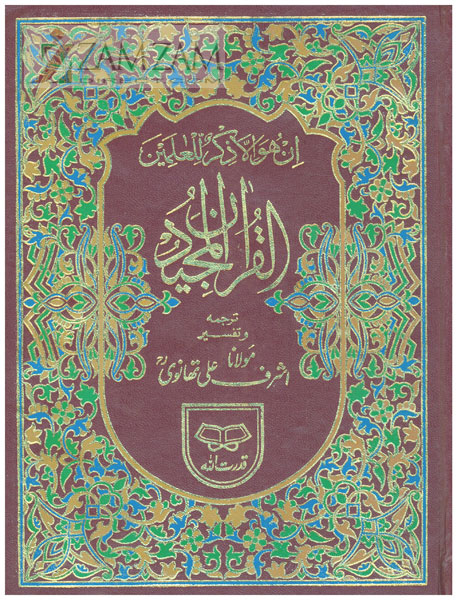 ZAMZAM
ان هو الا ذکر للعلمین
القرآن المجید
ترجمه
و تفسیر
مولانا
اشرف علی تھانوی رح
قدرت الله